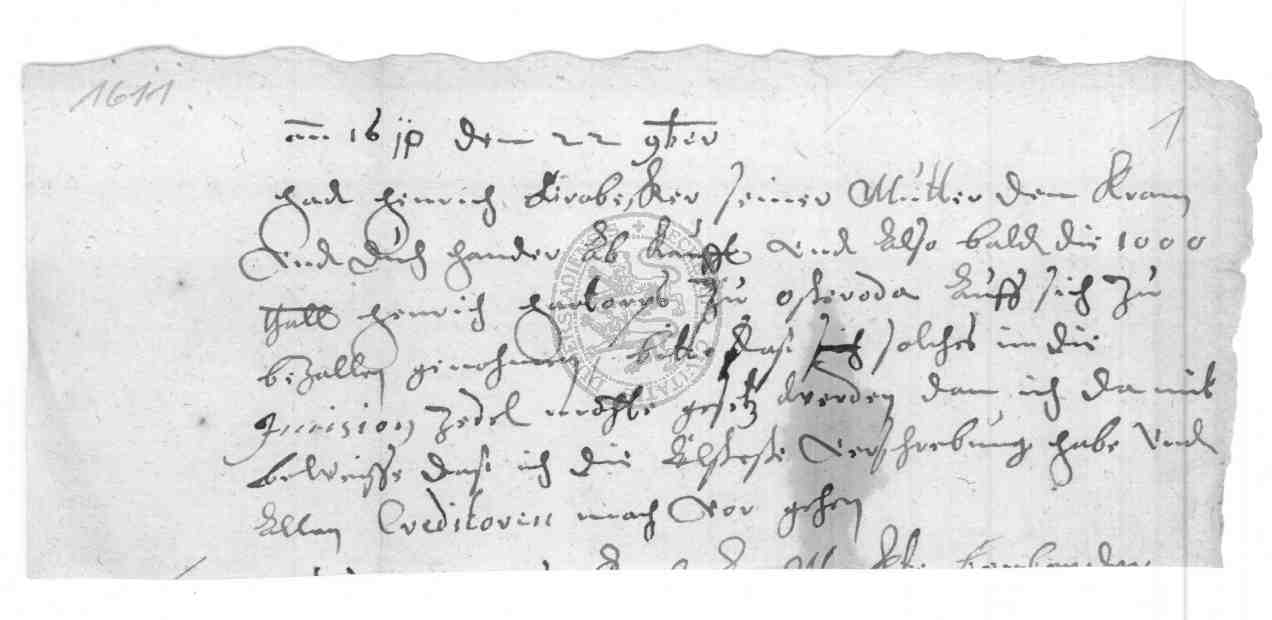 1611
1
am 16 jp den 22 9ber
hadt Heinrich seiner Mutter den Kram
vnd Duch handel Ab kaufft vnd Also baldt die 1000
thall Heinrich zu osteroda Auff sich zu
bezallen genohmen bitte das solches in die
zedel mochte gesetz werden dan ich da mit
beweisse das ich die Elsteste verschrebung habe vnd
Allen Creditoren mach vor gehen